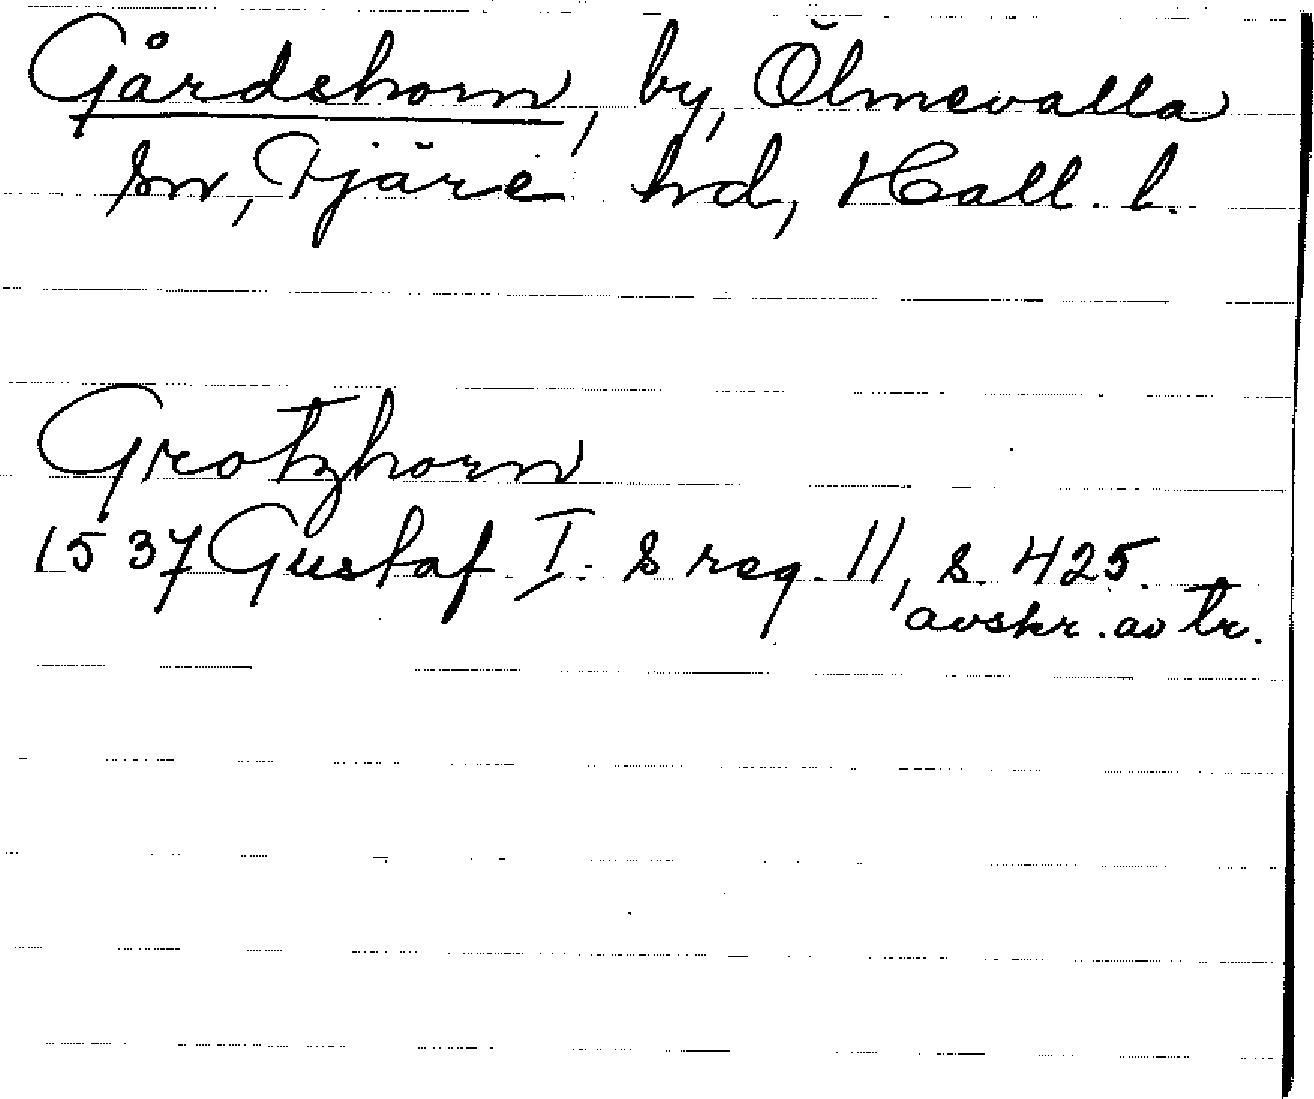 Gårdshorn, by, Ölmevalla
sn, Fjäre hd, Hall. l.
Grotzhorn
1537 Gustaf I. s reg. 11, s. 425.
avskr. av tr.